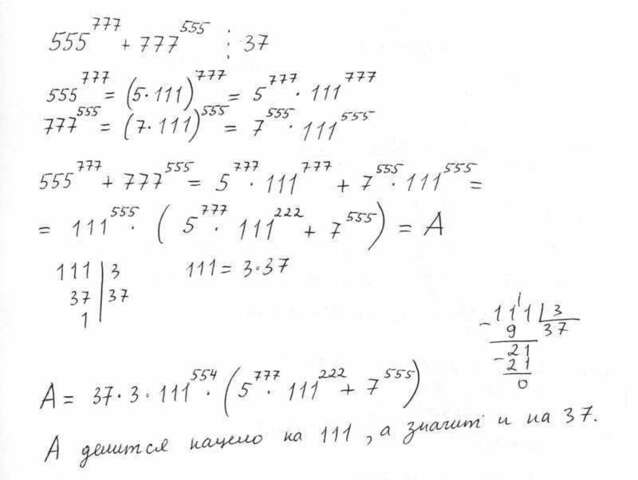 555⁷⁷⁷ + 777⁵⁵⁵ ⋮ 37
555⁷⁷⁷ = (5·111)⁷⁷⁷ = 5⁷⁷⁷ · 111⁷⁷⁷
777⁵⁵⁵ = (7·111)⁵⁵⁵ = 7⁵⁵⁵ · 111⁵⁵⁵
555⁷⁷⁷ + 777⁵⁵⁵ = 5⁷⁷⁷ · 111⁷⁷⁷ + 7⁵⁵⁵ · 111⁵⁵⁵ =
= 111⁵⁵⁵ · ( 5⁷⁷⁷ · 111²²² + 7⁵⁵⁵ ) = A
111 | 3 111 = 3·37
37 | 37
1 |
1
- 111 | 3
9 37
- 21
21
0
A = 37·3·111⁵⁵⁴ · ( 5⁷⁷⁷ · 111²²² + 7⁵⁵⁵ )
А делится нацело на 111, а значит и на 37.